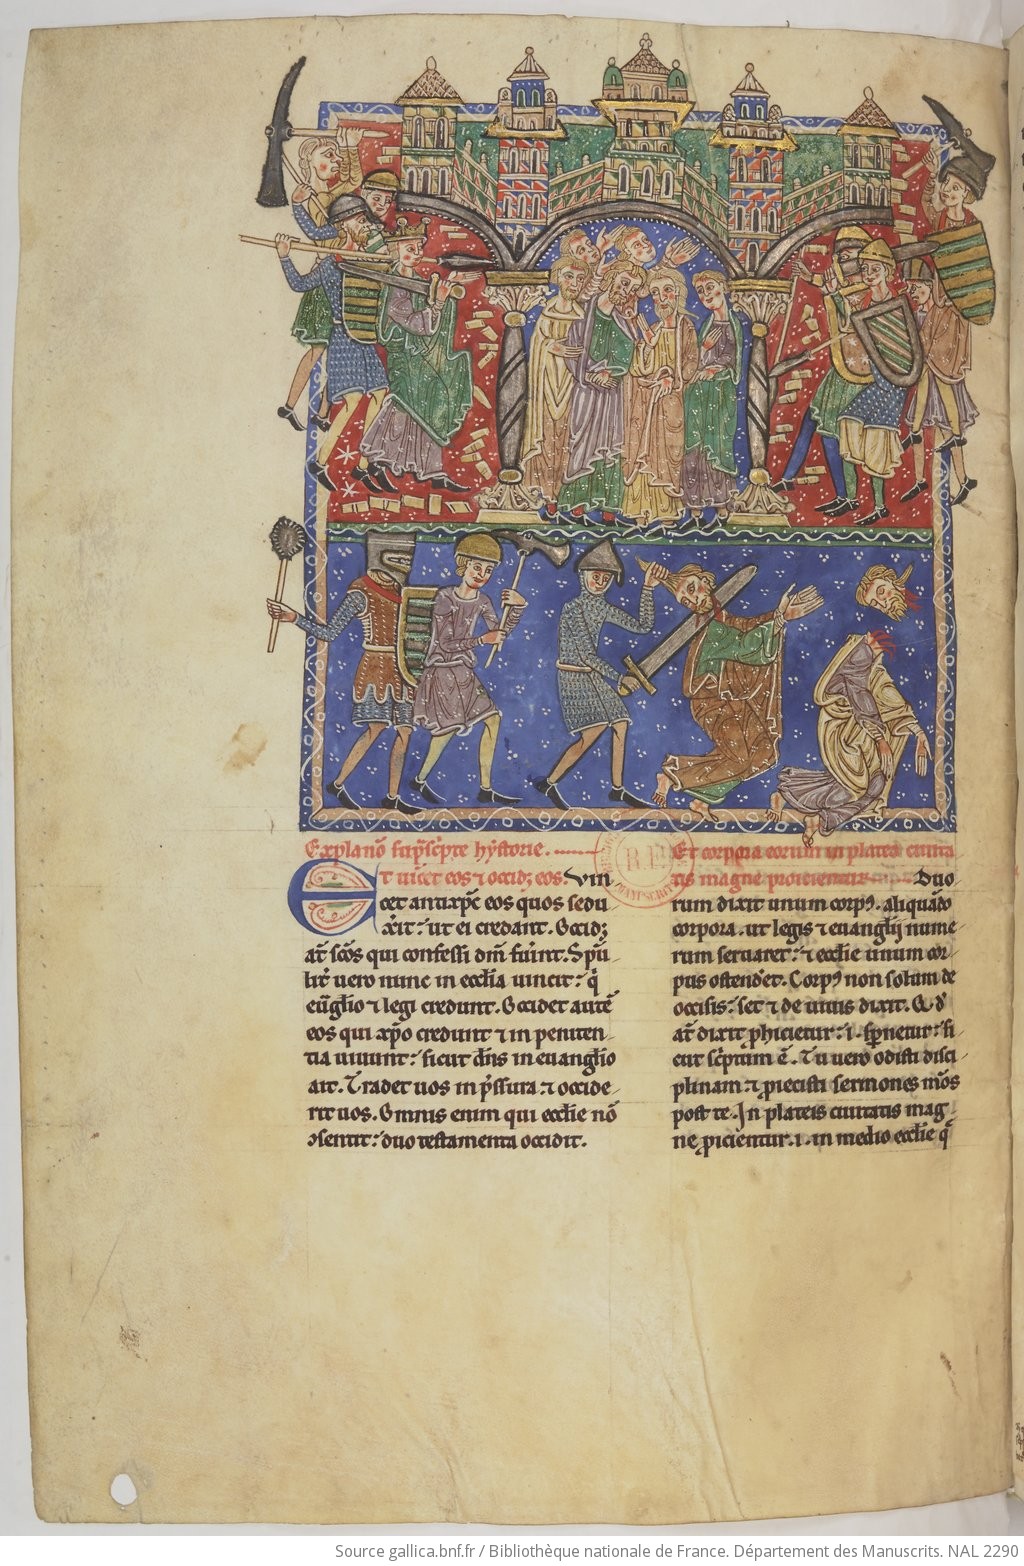 Explanō sup̄sc̄pte hystorie.
Et uicet eos ⁊ occidꝫ eos. Vin
cet antixp̄c eos quos sedu
xit: ut ei credant. Occidꝫ
at̄ sc̄os qui confessi dn̄m fuīnt. Sp̄u
lit̄ uero nunc in eccl̄ia uincit: q̇
eūgl̄io ⁊ legi credunt. Occidet autē
eos qui xp̄o credunt ⁊ in peniten
tia uiuunt: sicut dn̄s in euangl̄io
ait. Tradet uos in p̄ssura ⁊ occide
rit uos. Omnis enim qui eccl̄ie nō
ↄsentit: duo testamenta occidit.
Et corpora eorum in platea ciuita
tis magne proicientur. Duo
rum dixit unum corpꝰ. aliquādo
corpora. ut legis ⁊ euangl̄ij nume
rum seruaret: ⁊ eccl̄ie unum cor
pus ostend̄et. Corpꝰ non solum de
occisis: set ⁊ de uiuis dixit. Q̇ d̓
at̄ dixit ꝓhicietur: .i. sp̄netur: si
cut sc̄ptum ē. Tu uero odisti disci
plinam ⁊ ꝓiecisti sermones mōs
post te. In plateis ciuitatis mag
ne ꝓicientur. .i. in medio eccl̄ie q̄
Source gallica.bnf.fr / Bibliothèque nationale de France. Département des Manuscrits. NAL 2290